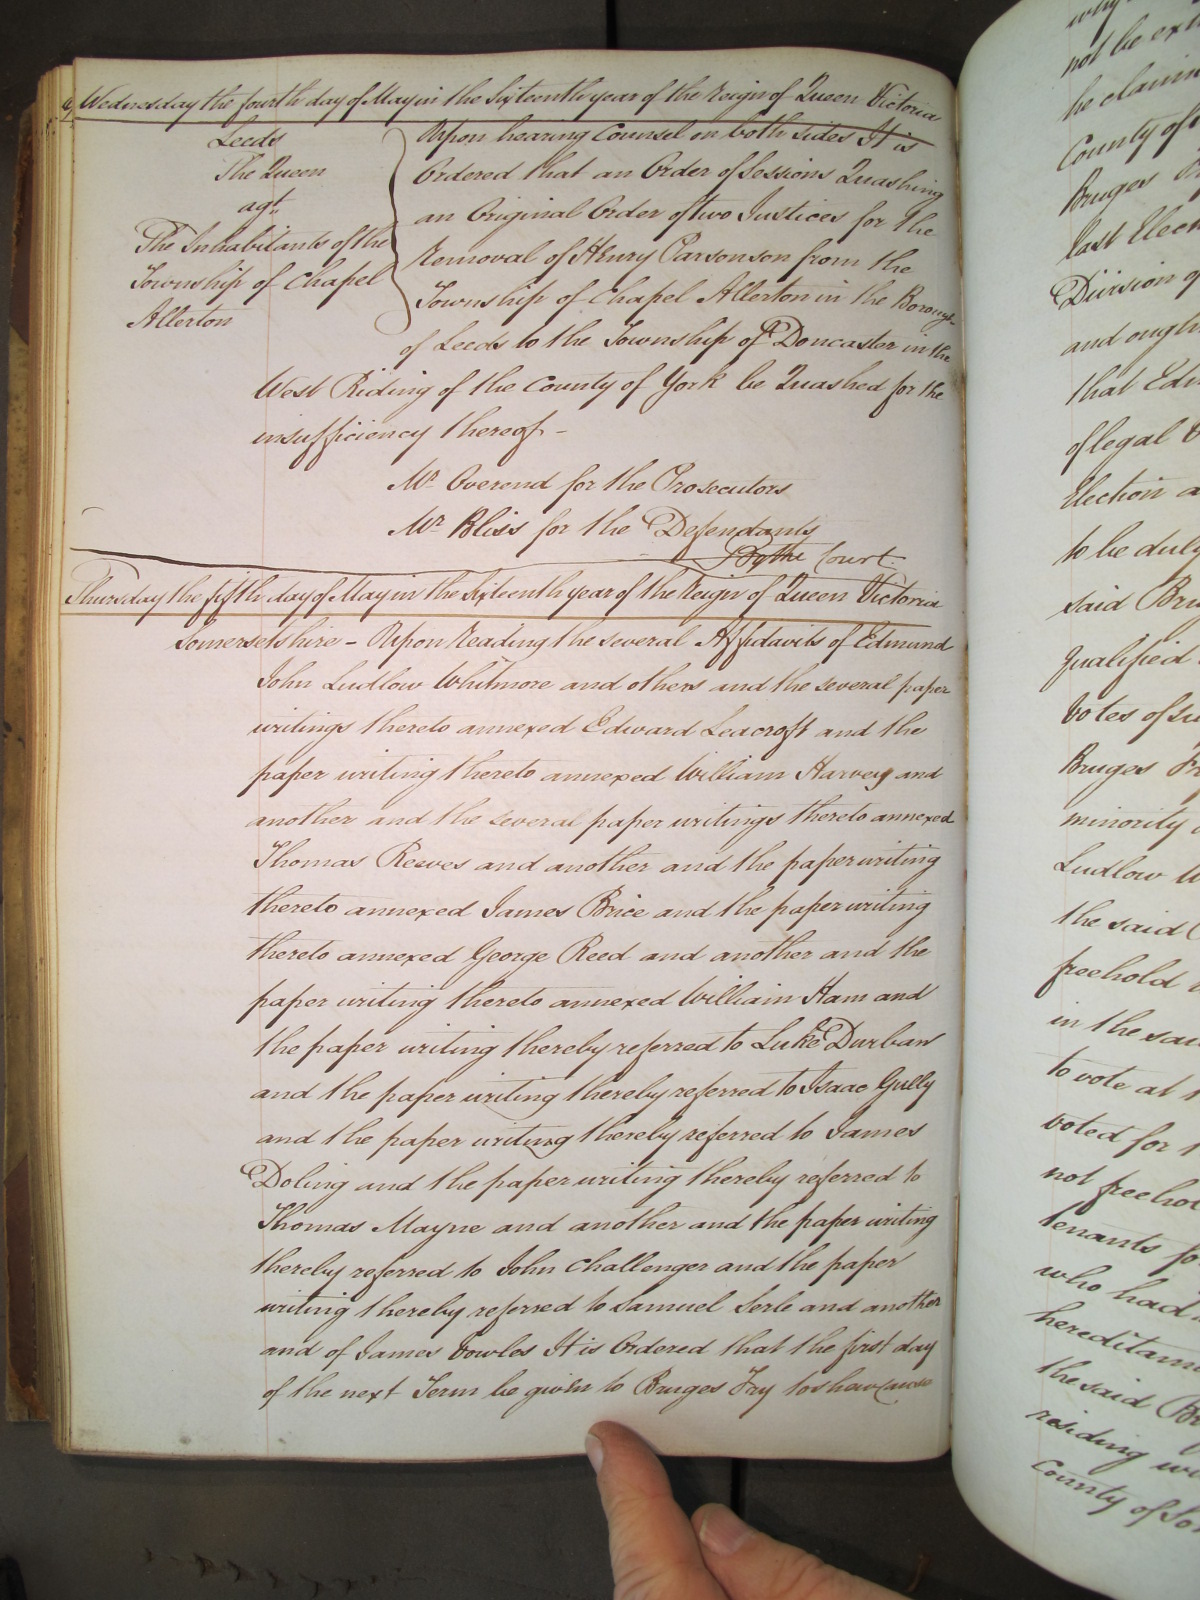 Wednesday the fourth day of May in the Sixteenth year of the Reign of Queen Victoria
Leeds
The Queen
agt.
The Inhabitants of the
Township of Chapel
Allerton
Upon hearing Counsel on both sides It is
Ordered that an Order of Sessions Quashing
an Original Order of two Justices for the
Removal of Henry Parsonson from the
Township of Chapel Allerton in the Borough
of Leeds to the Township of Doncaster in the
West Riding of the County of York be Quashed for the
insufficiency thereof -
Mr. Overend for the Prosecutors
Mr. Bliss for the Defendants
By the Court.
Thursday the fifth day of May in the Sixteenth year of the Reign of Queen Victoria
Somersetshire - Upon Reading the several Affidavits of Edmund
John Ludlow Whitmore and others and the several paper
writings thereto annexed Edward Leacroft and the
paper writing thereto annexed William Harvey and
another and the several paper writings thereto annexed
Thomas Reeves and another and the paper writing
thereto annexed James Brice and the paper writing
thereto annexed George Reed and another and the
paper writing thereto annexed William Ham and
the paper writing thereby referred to Luke Durban
and the paper writing thereby referred to Isaac Gully
and the paper writing thereby referred to James
Doling and the paper writing thereby referred to
Thomas Mayne and another and the paper writing
thereby referred to John Challenger and the paper
writing thereby referred to Samuel Serle and another
and of James Vowles It is Ordered that the first day
of the next Term be given to Bruges Fry to shew cause
not be
he
County of
Bruges
last
Division
and
that
of legal
Election
to be duly
said
qualified
votes of
Bruges
minority
Ludlow
the said
freehold
in the
to vote at
voted for
not
tenants
who had
the said
residing
County of